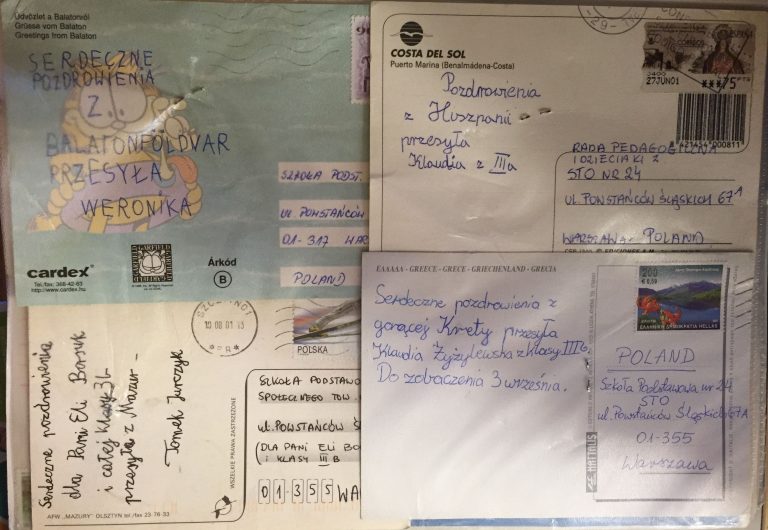 Üdvözlet a Balatonról
Grüsse vom Balaton
Greetings from Balaton
SERDECZNE
POZDROWIENIA
Z
BALATONFÖLDVAR
PRZESYŁA
WERONIKA
cardex
Tel./fax: 368-42-83
http://www.cardex.hu
GARFIELD
Árkód
B
SZKOŁA PODST.
UL POWSTAŃCÓW
01-317 WAR
POLAND
COSTA DEL SOL
Puerto Marina (Benalmádena-Costa)
Pozdrowienia
z Hiszpanii
przesyła
Klaudia z IIIa
-29-
CORREOS
ESPAÑA
3400
27JUN01
PTS
***75
8421454000811
RADA PEDAGOGICZNA
I DZIECIAKI Z
STO NR 24
UL. POWSTAŃCÓW ŚLĄSKICH 67A
WARSZAWA- POLAND
Serdeczne pozdrowienia
dla Pani Eli Borsuk
i całej klasy 3b
przesyła z Mazur-
-Tomek Jurczyk
AFW "MAZURY" OLSZTYN tel./fax 23-76-33
WSZELKIE PRAWA ZASTRZEŻONE
10 08 01 13
POLSKA
SZKOŁA PODSTAWO
SPOŁECZNEGO TOW.
UL. POWSTAŃCÓW Ś
(DLA PANI ELI BO
I KLASY III B
01355 WA
ΕΛΛΑΔΑ - GREECE - GRECE - GRIECHENLAND - GRECIA
Serdeczne pozdrowienia z
gorącej Krety przesyła
Klaudia Żyżylewska z klasy IIIb.
Do zobaczenia 3 września.
200
€ 0,59
ΕΛΛΗΝΙΚΗ ΔΗΜΟΚΡΑΤΙΑ HELLAS
POLAND
Szkoła Podstawowa nr 24
STO
ul. Powstańców Śląskich 67A
01-355
Warszawa